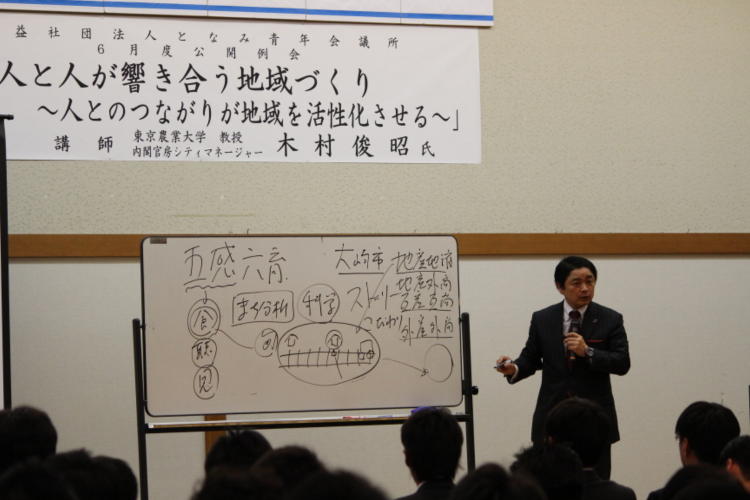 益社団法人となみ青年会議所
6月度公開例会
人と人が響き合う地域づくり
～人とのつながりが地域を活性化させる～」
講師 東京農業大学 教授
内閣官房シティマネージャー 木村俊昭氏
五感六育
大崎市
地産地消
地産外商
ストーリー
こだわり
外産外商
まち分析
科学
食
聴